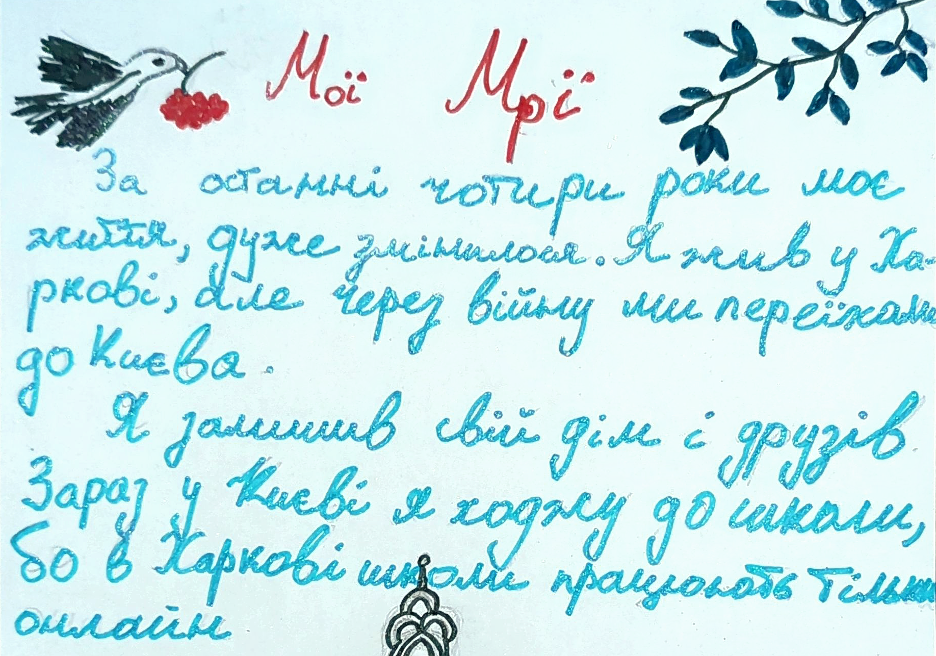 Мої Мрії
За останні чотири роки моє
життя, дуже змінилося. Я жив у Ха-
ркові, але через війну ми переїхали
до Києва.
Я залишив свій дім і друзів
Зараз у Києві я ходжу до школи,
бо в Харкові школи працюють тільки
онлайн